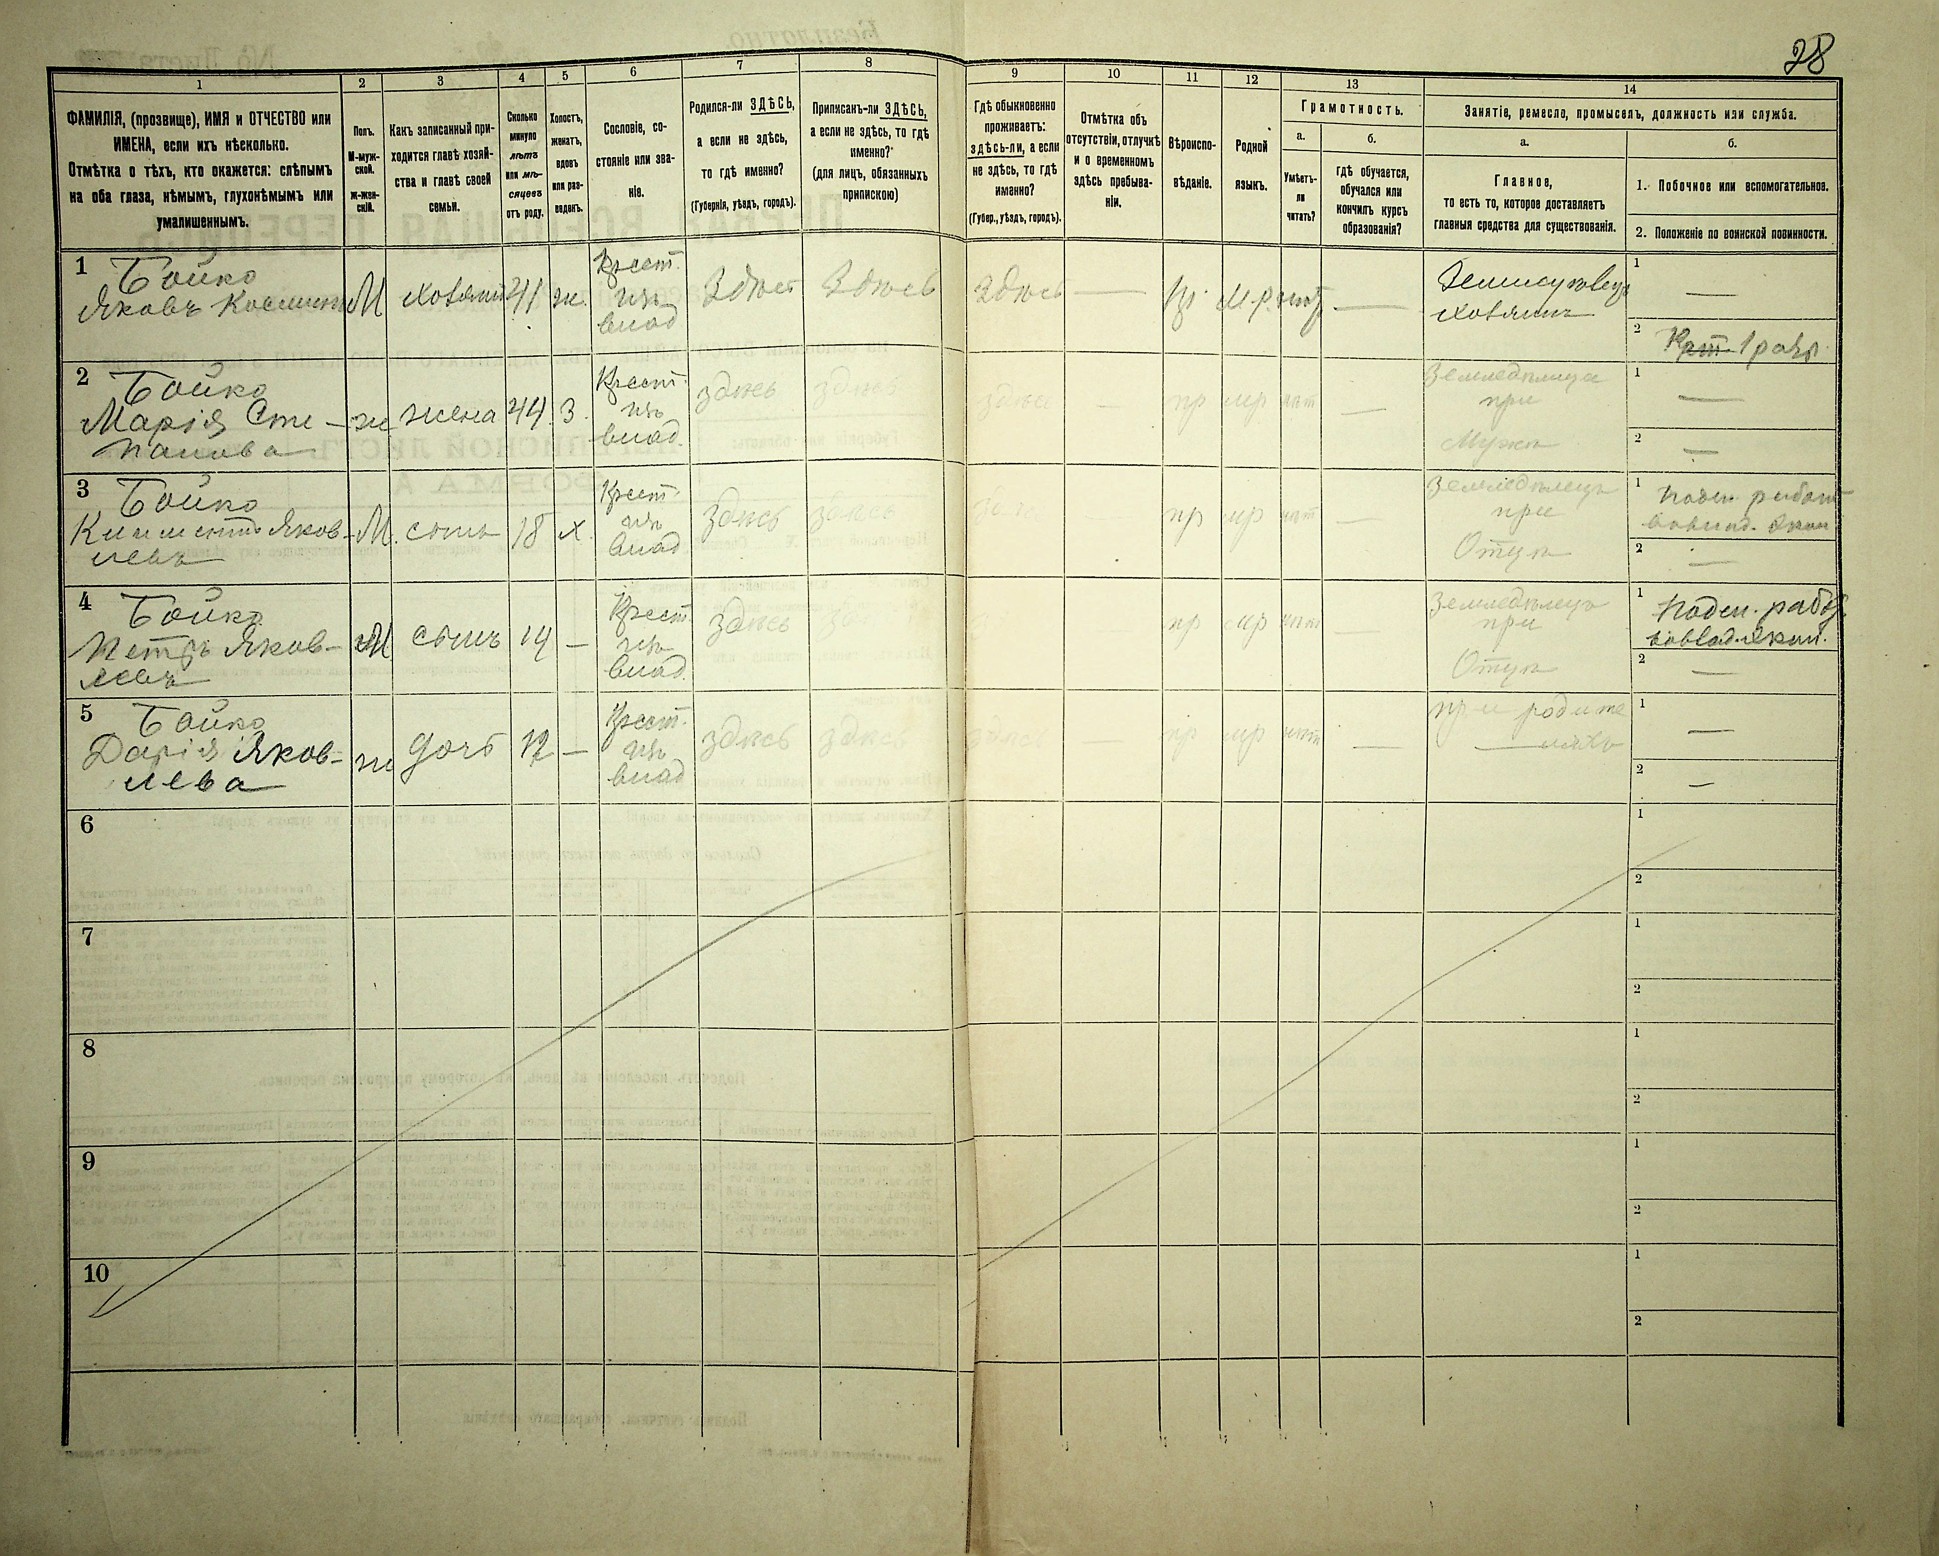 28
1
2
3
4
5
6
7
8
9
10
11
12
13
14
ФАМИЛІЯ, (прозвище), ИМЯ и ОТЧЕСТВО или
ИМЕНА, если ихъ нѣсколько.
Отмѣтка о тѣхъ, кто окажется: слѣпымъ
на оба глаза, нѣмымъ, глухонѣмымъ или
умалишеннымъ.
Полъ.
М-муж-
ской.
ж-жен-
скій.
Какъ записанный при-
ходится главѣ хозяй-
ства и главѣ своей
семьи.
Сколько
минуло
лѣтъ
или мѣ-
сяцевъ
отъ роду.
Холостъ,
женатъ,
вдовъ
или раз-
веденъ.
Сословіе, со-
стояніе или зва-
ніе.
Родился-ли ЗДѢСЬ,
а если не здѣсь,
то гдѣ именно?
(Губернія, уѣздъ, городъ).
Приписанъ-ли ЗДѢСЬ,
а если не здѣсь, то гдѣ
именно?
(для лицъ, обязанныхъ
припискою)
Гдѣ обыкновенно
проживаетъ:
здѣсь-ли, а если
не здѣсь, то гдѣ
именно?
(Губер., уѣздъ, городъ).
Отмѣтка объ
отсутствіи, отлучкѣ
и о временномъ
здѣсь пребыва-
ніи.
Вѣроиспо-
вѣданіе.
Родной
языкъ.
Грамотность.
а.
Умѣетъ-
ли
читать?
б.
Гдѣ обучается,
обучался или
кончилъ курсъ
образованія?
Занятіе, ремесло, промыселъ, должность или служба.
а.
Главное,
то есть то, которое доставляетъ
главныя средства для существованія.
б.
1. Побочное или вспомогательное.
2. Положеніе по воинской повинности.
1
Бойко
Яковъ
М
хозяинъ
41
ж.
Крест.
изъ
влад
Здѣсь
Здѣсь
здѣсь
—
пр.
м.р.
нѣтъ
—
хозяинъ
1
—
2
1 разр.
2
Бойко
Марія Сте-
панова
ж
жена
44
З.
Крест.
изъ
влад.
здѣсь
здѣсь
здѣсь
—
пр
мр
нѣт
—
Земледѣлица
при
Мужѣ
1
—
2
—
3
Бойко
Климентъ Яков-
левъ
М.
сынъ
18
х.
Крест.
изъ
влад
здѣсь
здѣсь
пр
мр
нѣт
—
Земледѣлецъ
при
Отцѣ
1
Поден. работ
2
—
4
Бойко
Петръ Яков-
левъ
М
сынъ
14
—
Крест.
изъ
влад.
здѣсь
пр
мр
нѣт
—
Земледѣлецъ
при
Отцѣ
1
Поден. работ.
2
—
5
Бойко
Дарія Яков-
лева
ж
дочь
12
—
Крест.
изъ
влад
здѣсь
здѣсь
здѣсь
—
пр
мр
нѣт
—
при родите
ляхъ
1
—
2
—
6
1
2
7
1
2
8
1
2
9
1
2
10
1
2